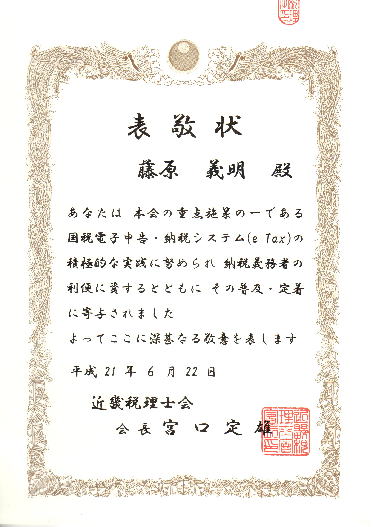 表敬状
藤原 義明 殿
あなたは 本会の重点施策の一である
国税電子申告・納税システム(e Tax)の
積極的な実践に努められ 納税義務者の
利便に資するとともに その普及・定着
に寄与されました
よってここに深甚なる敬意を表します
平成 21 年 6 月 22 日
近畿税理士会
会長 宮口定雄